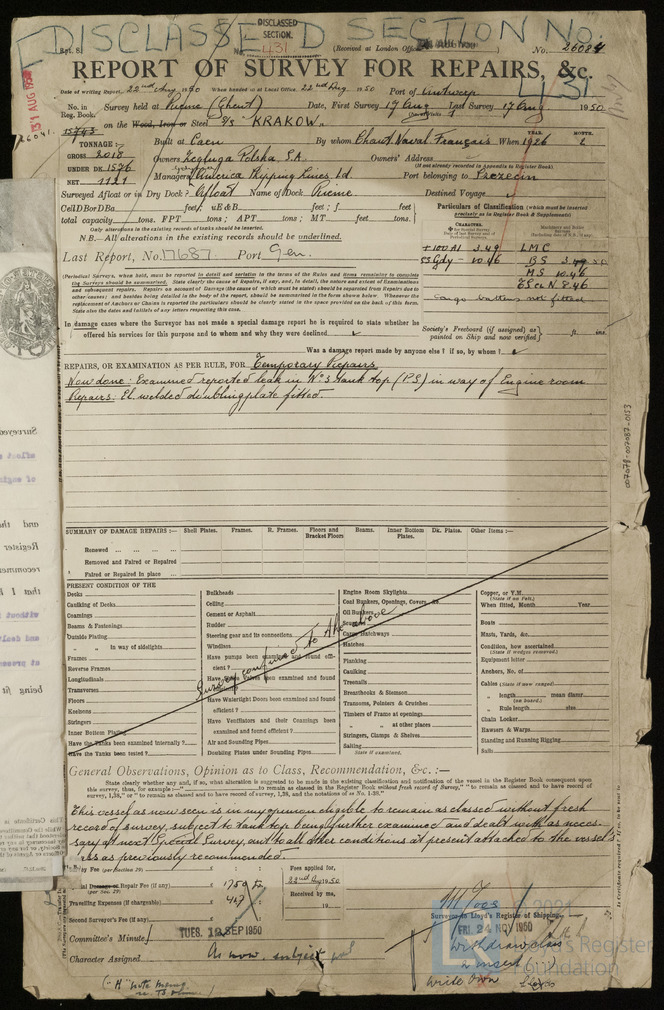 DISCLASSED SECTION No:
431
DISCLASSED
SECTION.
No. 431
Rpt. 8.
(Received at London Office
AUG 1950
)
No. 26084
REPORT OF SURVEY FOR REPAIRS, &c.
Date of writing Report 22nd Aug 1950 When handed in at Local Office 22nd Aug 1950 Port of Antwerp
31 AUG 1950
No. in Reg. Book. Survey held at Rieme (Ghent) Date, First Survey 17 Aug Last Survey 17 Aug 1950
26041.
15793 on the Wood, Iron or Steel S/S KRAKOW
TONNAGE:
GROSS 2018
UNDER DK 1526
NET 1121
Built at Caen By whom Chant. Naval Français When 1926
YEAR. MONTH.
Owners Zegluga Polska, S.A. Owners' Address
(If not already recorded in Appendix to Register Book)
Managers Shipping Lines, Ld. Port belonging to Szczecin
Surveyed Afloat or in Dry Dock? Afloat Name of Dock Rieme Destined Voyage
CellDBorDBa feet; uE&B. feet; f feet
total capacity tons. FPT tons; APT tons; MT feet tons.
Only alterations in the existing records of tanks should be inserted.
N.B.—All alterations in the existing records should be underlined.
Particulars of Classification (which must be inserted
precisely as in Register Book & Supplements)
CHARACTER.
+100A1 3.49 LMC
SSGdy - 10.46 BS 3.49
MS 10.46
TS CL N 8.46
Cargo battens not fitted
Last Report, No. 17687 Port Gen.
(Periodical Surveys, when held, must be reported in detail and seriatim in the terms of the Rules and items remaining to complete
the Surveys should be summarised. State clearly the cause of Repairs, if any, and, in detail, the nature and extent of Examinations
and subsequent repairs. Repairs on account of Damage (the cause of which must be stated) should be separated from Repairs due to
other causes; and besides being detailed in the body of the report, should be summarised in the form shown below. Whenever the
replacement of Anchors or Chains is reported the particulars should be clearly stated in the space provided on the back of this form.
State also the dates and initials of any letters respecting this case.
In damage cases where the Surveyor has not made a special damage report he is required to state whether he
offered his services for this purpose and to whom and why they were declined
Society's Freeboard (if assigned) as
painted on Ship and now verified ft. ins.
Was a damage report made by anyone else? if so, by whom?
REPAIRS, OR EXAMINATION AS PER RULE, FOR Temporary Repairs
Now done: Examined reported leak in No 3 tank top (P.S) in way of Engine room.
Repairs: El. welded doubling plate fitted.
007079-007087-0153
SUMMARY OF DAMAGE REPAIRS :— Shell Plates. Frames. R. Frames. Floors and Bracket Floors Beams. Inner Bottom Plates. Dk. Plates. Other Items :—
Renewed ... ... ... ...
Removed and Faired or Repaired
Faired or Repaired in place ...
PRESENT CONDITION OF THE
Decks
Caulking of Decks
Coamings
Beams & Fastenings
Outside Plating
" " in way of sidelights
Frames
Reverse Frames
Longitudinals
Transverses
Floors
Keelsons
Stringers
Inner Bottom Plating
Have the Tanks been examined internally?
Have the Tanks been tested?
Bulkheads
Ceiling
Cement or Asphalt
Rudder
Steering gear and its connections
Windlass
Have pumps been examined and found efficient?
Have Valves been examined and found
Have Watertight Doors been examined and found
efficient?
Have Ventilators and their Coamings been
examined and found efficient?
Air and Sounding Pipes
Doubling Plates under Sounding Pipes
Engine Room Skylights
Coal Bunkers, Openings, Covers &c.
Oil Bunkers
Cargo Hatchways
Hatches
Planking
Caulking
Treenails
Breasthooks & Stemson
Transoms, Pointers & Crutches
Timbers of Frame at openings
" " at other places
Stringers, Clamps & Shelves
Salting
State if examined.
Copper, or Y.M.
(State if on Felt.)
When fitted, Month Year
Boats
Masts, Yards, &c.
Condition, how ascertained
(State if wedges removed.)
Equipment letter
Anchors, No. of
Cables (State if now ranged)
" length mean diamr.
(on board.)
" Rule length size
Chain Locker
Hawsers & Warps
Standing and Running Rigging
Sails
Survey confined to the above
General Observations, Opinion as to Class, Recommendation, &c. :—
State clearly whether any and, if so, what alteration is suggested to be made in the existing classification and notification of the vessel in the Register Book consequent upon
this survey, thus, for example:— " to remain as classed in Register Book without fresh record of Survey," " to remain as classed and to have record of
survey, 1,38," or " to remain as classed and to have record of survey, 1,38, and the notations of ss No. 1-38."
This vessel as now seen is in my opinion eligible to remain as classed without fresh
record of survey, subject to tank top being further examined and dealt with as neces-
sary at next Special Survey, and to all other conditions at present attached to the vessel's
class as previously recommended.
Survey Fee (per Section 29) £ : :
Special Damage or Repair Fee (if any) £ 1750
(per Sec. 29)
Travelling Expenses (if chargeable) £ 427
Second Surveyor's Fee (if any) £ : :
Fees applied for,
22nd Aug 1950
Received by me,
19
M Toos
Surveyor to Lloyd's Register of Shipping.
FRI. 24 NOV 1950
Committee's Minute
TUES. 12 SEP 1950
Character Assigned As now, subject
Withdraw class
write Own
© 2021
Lloyd's Register
Foundation